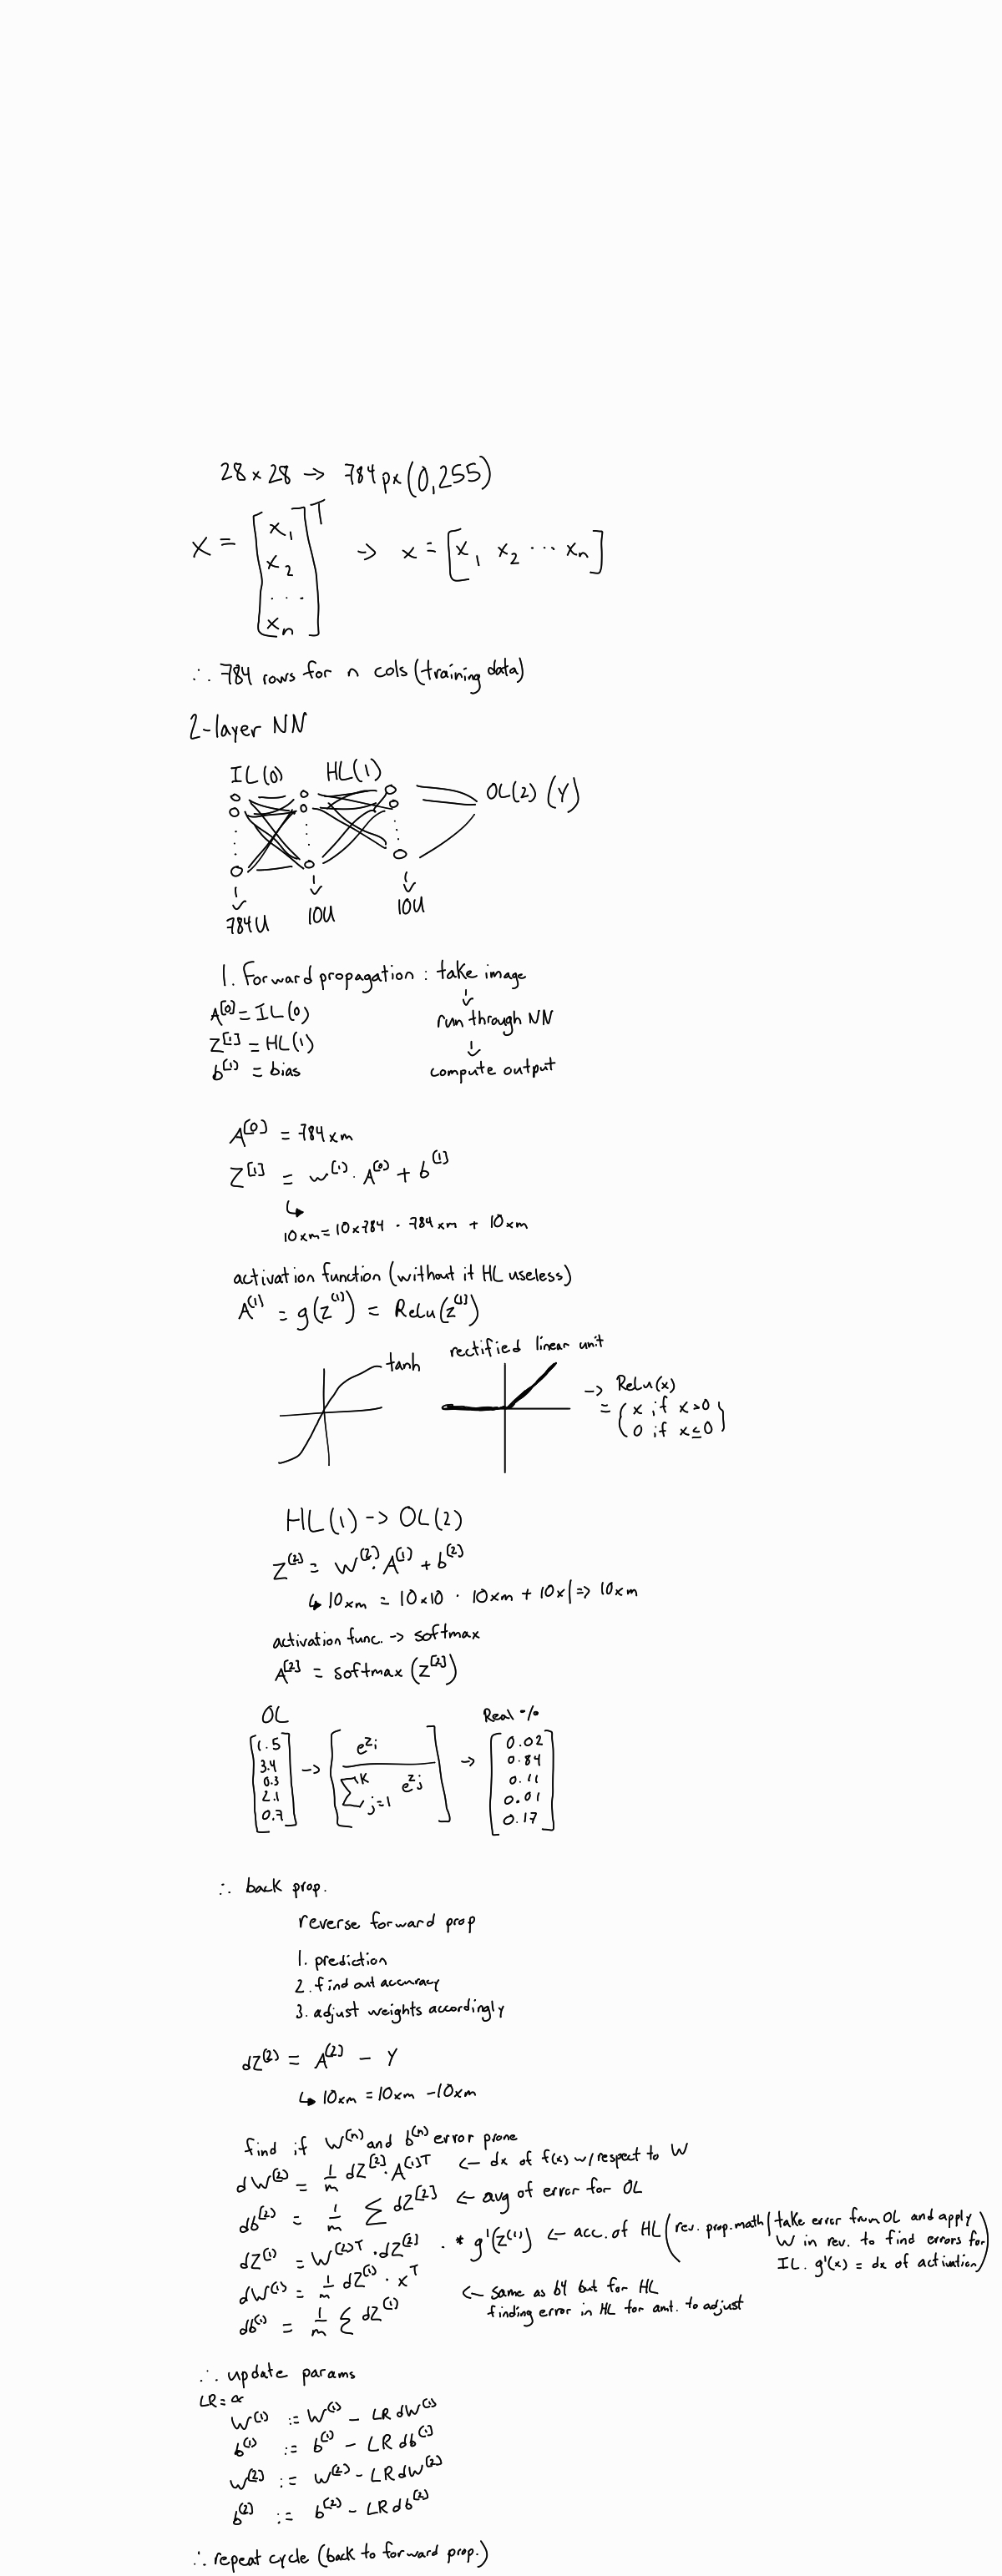 28 × 28 -> 784 px (0,255)
X = [x₁ x₂ ... xₙ]ᵀ -> x = [x₁ x₂ ⋯ xₙ]
∴ 784 rows for n cols (training data)
2-layer NN
IL(0) HL(1) OL(2) (Y)
784U 10U 10U
1. Forward propagation : take image
A^[0] = IL(0) run through NN
Z^[1] = HL(1)
b^(1) = bias compute output
A^[0] = 784 x m
Z^[1] = w^(1) · A^(0) + b^[1]
↳ 10 x m = 10 x 784 · 784 x m + 10 x m
activation function (without it HL useless)
A^(1) = g(z^(1)) = Relu(z^(1))
tanh rectified linear unit
-> Relu(x)
= (x if x>0
0 if x≤0)
HL(1) -> OL(2)
Z^(2) = W^(2) · A^(1) + b^(2)
↳ 10xm = 10x10 · 10xm + 10x1 => 10xm
activation func. -> softmax
A^[2] = softmax (Z^[2])
OL Real %
[1.5 3.4 0.3 2.1 0.7] -> [e^zi / ∑ᴷ j=1 e^zj] -> [0.02 0.84 0.11 0.01 0.17]
∴ back prop.
reverse forward prop
1. prediction
2. find out accuracy
3. adjust weights accordingly
dZ^(2) = A^(2) - Y
↳ 10xm = 10xm - 10xm
find if W^(n) and b^(n) error prone
dW^(2) = 1/m dZ^[2] · A^(1)T <- dx of f(x) w/respect to W
db^(2) = 1/m ∑ dZ^[2] <- avg of error for OL
dZ^(1) = W^(2)T · dZ^[2] . * g'(z^(1)) <- acc. of HL (rev. prop. math | take error from OL and apply
W in rev. to find errors for
IL. g'(x) = dx of activation)
dW^(1) = 1/m dZ^(1) · x^T
<- same as b4 but for HL
finding error in HL for amt. to adjust
db^(1) = 1/m ∑ dZ^(1)
∴ update params
LR = α
W^(1) := W^(1) - LR dW^(1)
b^(1) := b^(1) - LR db^(1)
W^(2) := W^(2) - LR dW^(2)
b^(2) := b^(2) - LR db^(2)
∴ repeat cycle (back to forward prop.)